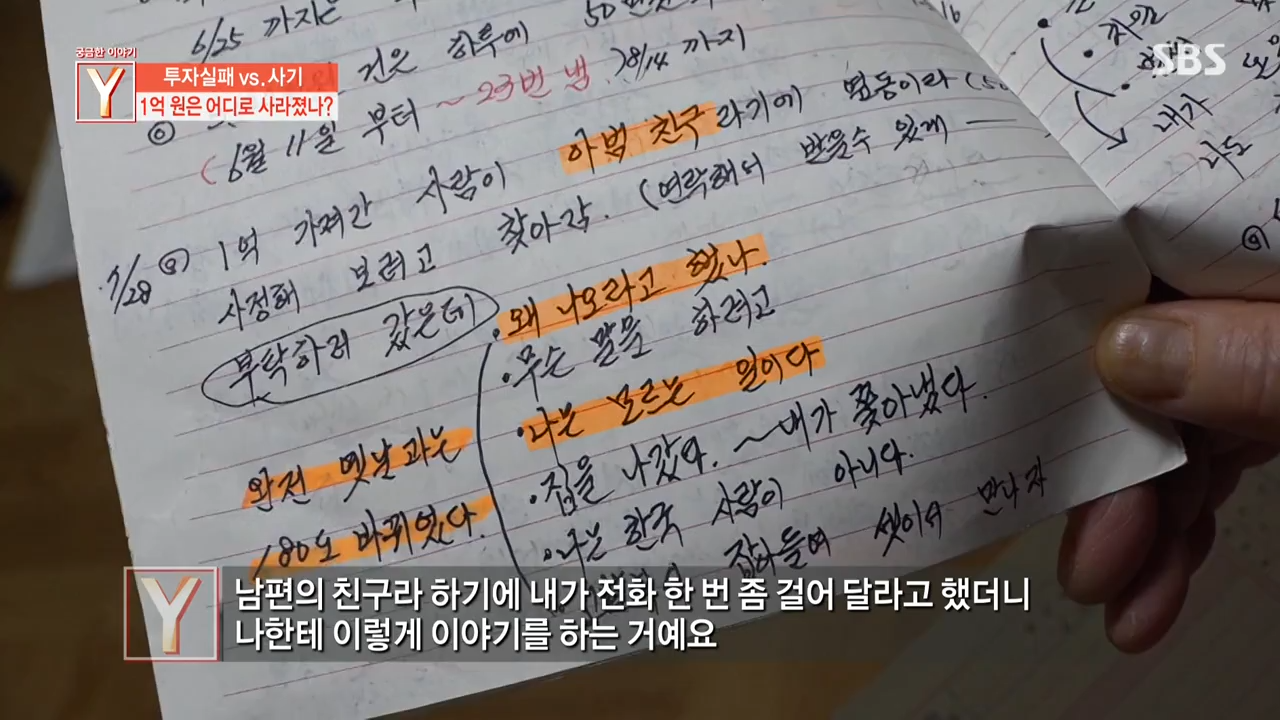 궁금한 이야기
Y
투자실패 vs. 사기
1억 원은 어디로 사라졌나?
SBS
6/25 까지는
건은 하루에 50번
~23번 냄 까지
(6월 11일 부터
아범 친구라기에
1억 가져간 사람이
7/28
사정해 보려고 찾아감. (연락해서 받을수 있게
부탁하러 갔은데
·왜 나오라고 했나.
·무슨 말을 하려고
·나는 모르는 일이다
·집을 나갔다. ~내가 쫓아냈다.
·나는 한국 사람이 아니다.
잡아들여 셋이서 만나자
완전 옛날과는
180도 바뀌었다.
내가
나도
남편의 친구라 하기에 내가 전화 한 번 좀 걸어 달라고 했더니
나한테 이렇게 이야기를 하는 거예요